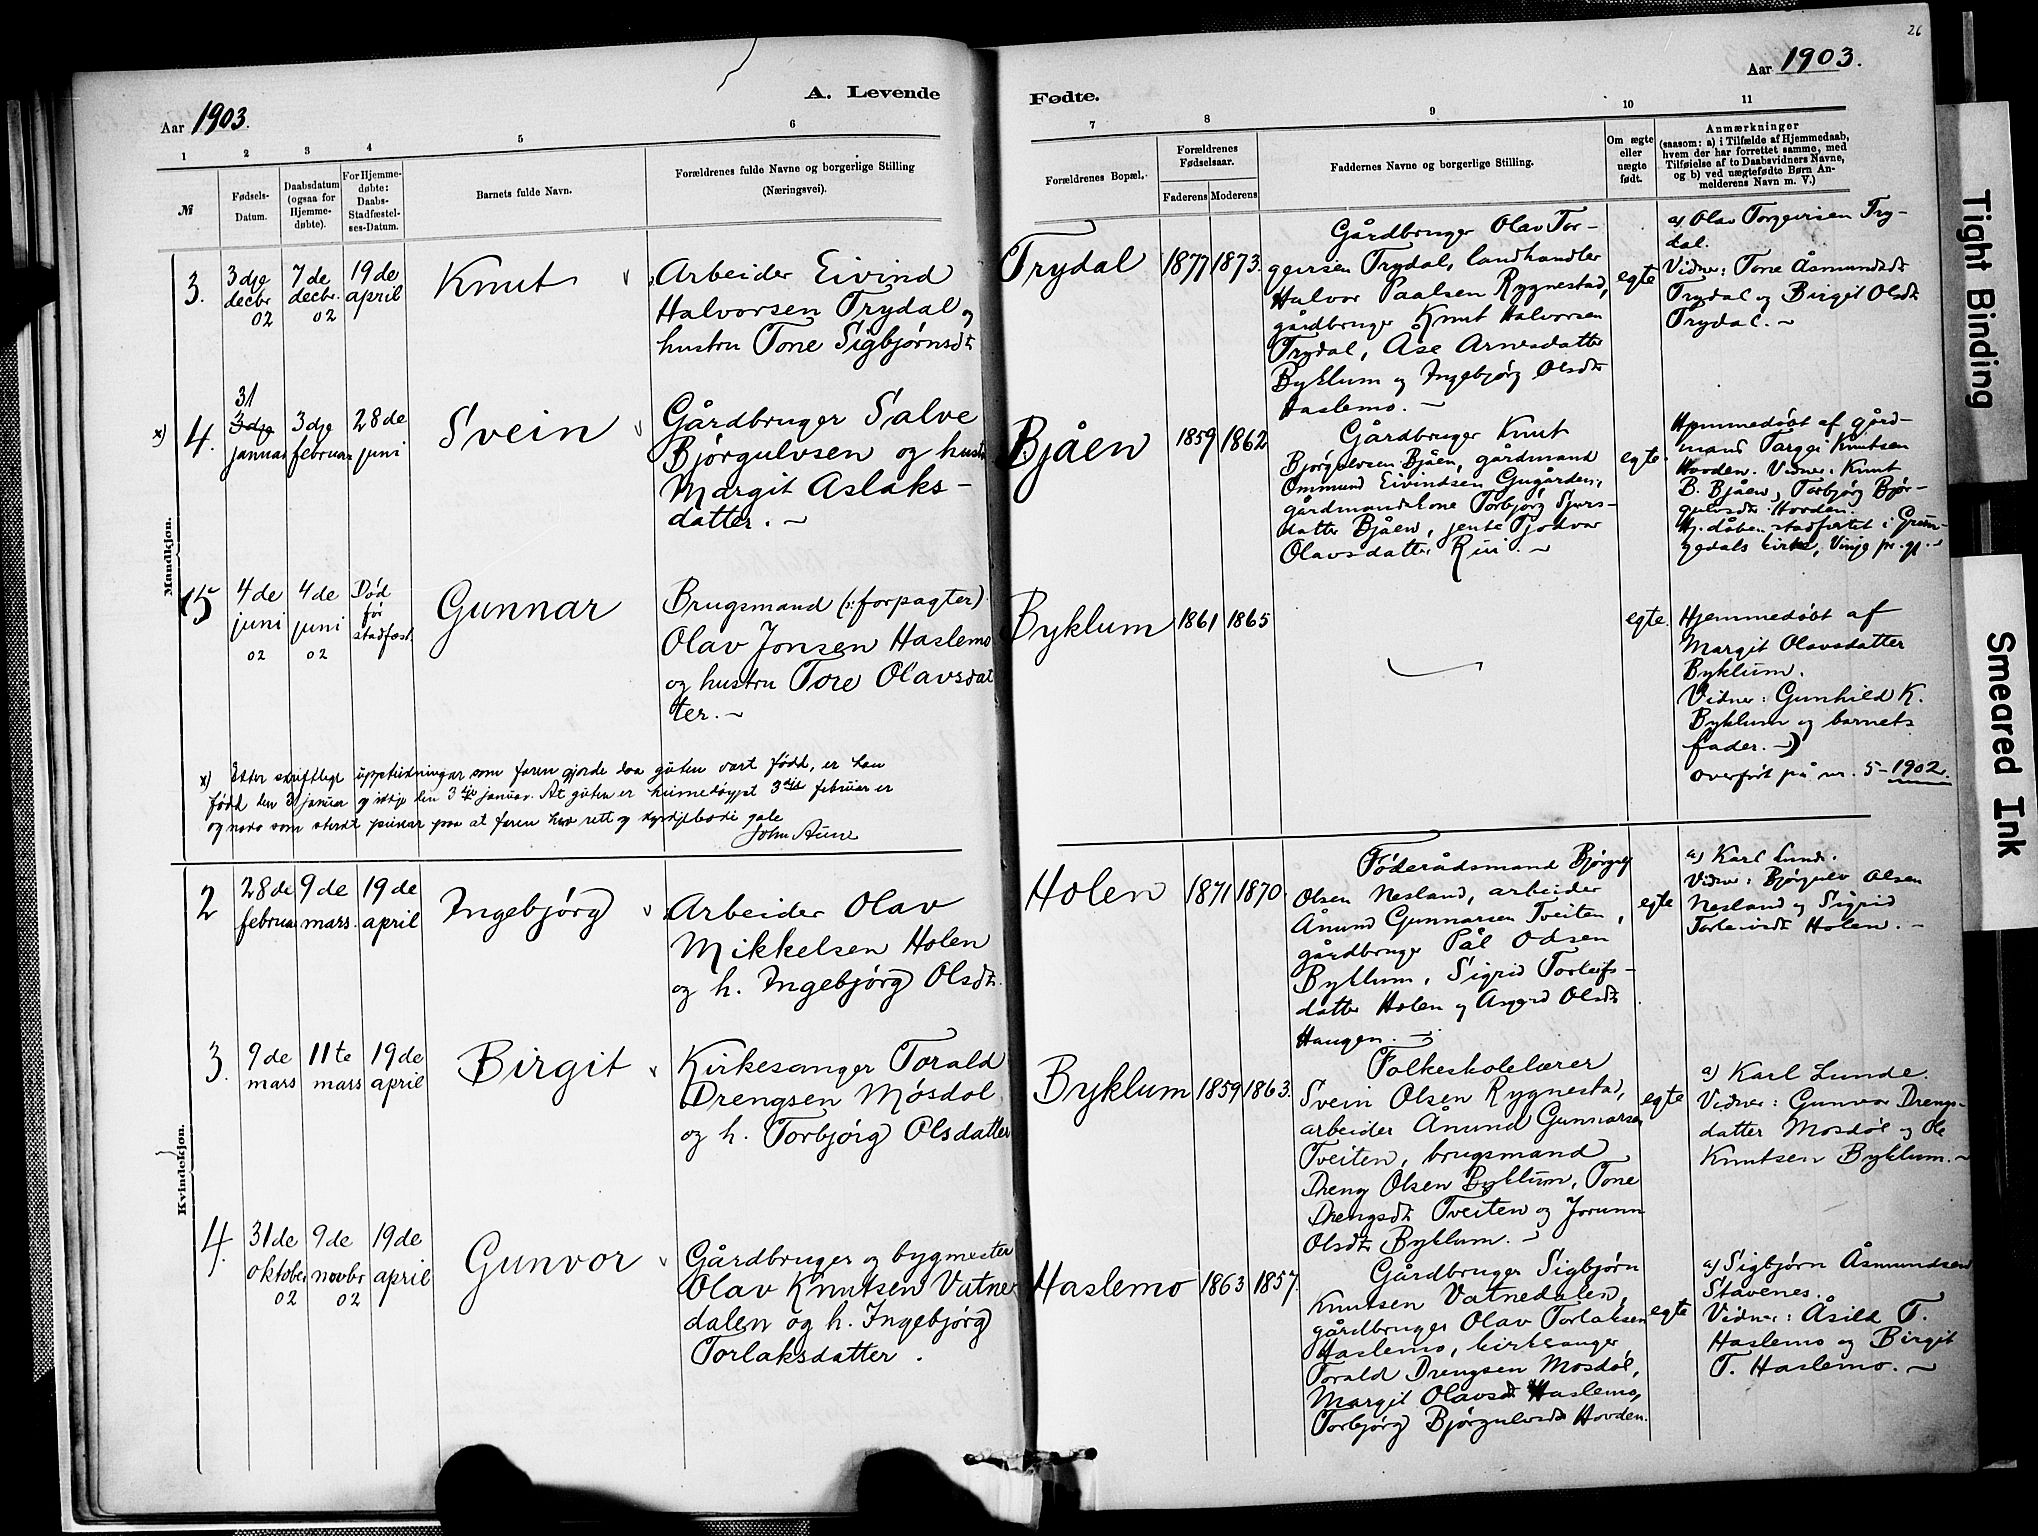 26
Aar 1903.
A. Levende
Fødte.
Aar 1903.
1 2 3 4 5 6
7 8 9 10 11
№
Fødsels-
Datum.
Daabsdatum
(ogsaa for
Hjemme-
døbte).
For Hjemme-
døbte:
Daabs-
Stadfæstel-
ses-Datum.
Barnets fulde Navn.
Forældrenes fulde Navne og borgerlige Stilling
(Næringsvei).
Forældrenes Bopæl.
Forældrenes
Fødselsaar.
Faderens Moderens
Faddernes Navne og borgerlige Stilling.
Om ægte
eller
uægte
født.
Anmærkninger
(saasom: a) i Tilfælde af Hjemmedaab,
hvem der har forrettet samme, med
Tilføielse af to Daabsvidners Navne,
og b) ved uægtefødte Børn An-
melderens Navn m. V.)
Mandkjøn.
3.
3dje
decbr
02
7de
decbr.
02
19de
april
Knut
Arbeider Eivind
Halvorsen Trydal og
hustru Tone Sigbjørnsdt
Trydal
1877
1873.
Gårdbruger Olav Tor-
geirsen Trydal, landhandler
Halvor Paalsen Rygnestad,
gårdbruger Knut Halvorsen
Trydal, Åse Arnesdatter
Byklum og Ingebjørg Olsdt
Haslemo. –
egte
a) Olav Torgeirsen Try-
dal.
Vidner: Tone Åsmundsdt
Trydal og Birgit Olsdt
Trydal. –
x)
4.
31
3dje
januar
3dje
februar
28de
juni
Svein
Gårdbruger Salve
Bjørgulvsen og hustru
Margit Aslaks-
datter. –
Bjåen
1859
1862
Gårdbruger Knut
Bjørgulvsen Bjåen, gårdmand
Ommund Eivindsen Gugården,
gårdmandskone Torbjørg Sjurs-
datter Bjåen, jente Tjodvor
Olavsdatter Rui. –
egte.
Hjemmedøbt af gård-
mand Targei Knutsen
Hovden. Vidner: Knut
B. Bjåen, Torbjørg Bjør-
gulvsdt. Hovden.
Hj. dåben stadfestet i Grun-
gedals kirke, Vinje pr.gj. –
15
4de
juni
02
4de
juni
02
Død
før
stadfæst.
Gunnar
Brugsmand (ɔ: forpagter)
Olav Jonsen Haslemo
og hustru Tore Olavsdat
ter. –
Byklum
1861
1865
egte.
Hjemmedøbt af
Margit Olavsdatter
Byklum.
Vidner: Gunhild K.
Byklum og barnets
fader. –)
Overført på nr. 5 - 1902.
x) Etter skriftlege upptekningar som faren gjorde daa guten vart født, er han
født den 31 januar og ikkje den 3die januar. At guten er heimedøypt 3die februar er
og noko som sterkt peikar paa at faren hev rett og kyrkjebodi gale
John Aune
Kvindekjøn.
2
28de
februar
9de
mars.
19de
april
Ingebjørg
Arbeider Olav
Mikkelsen Holen
og h. Ingebjørg Olsdt.
Holen
1871
1870
Føderådsmand Bjørgulv
Olsen Nesland, arbeider
Ånund Gunnarsen Tveiten,
gårdbruger Pål Odsen
Byklum, Sigrid Torleifs-
datter Holen og Asgerd Olsdt
Haugen. –
egte
a) Karl Lunde.
Vidner: Bjørgulv Olsen
Nesland og Sigrid
Torleivsdt Holen. –
3.
9de
mars
11te
mars
19de
april
Birgit
Kirkesanger Torald
Drengsen Mosdøl
og h. Torbjørg Olsdatter
Byklum
1859
1863.
Folkeskolelærer
Svein Olsen Rygnestad,
arbeider Ånund Gunnarsen
Tveiten, brugsmand
Dreng Olsen Byklum, Tone
Drengsdt Tveiten og Jorunn
Olsdt Byklum. –
egte
a) Karl Lunde.
Vidner: Gunvor Drengs-
datter Mosdøl og Ole
Knutsen Byklum. –
4.
31de
oktober
02
9de
novbr
02
19de
april
Gunvor
Gårdbruger og bygmester
Olav Knutsen Vatne
dalen og h. Ingebjørg
Torlaksdatter.
Haslemo
1863
1857.
Gårdbruger Sigbjørn
Knutsen Vatnedalen,
gårdbruger Olav Torlaksen
Haslemo, kirkesanger
Torald Drengsen Mosdøl,
Margit Olavsdt Haslemo,
Torbjørg Bjørgulvsdt Hovden.
egte
a) Sigbjørn Åsmundsen
Stavenes.
Vidner: Åsild T.
Haslemo og Birgit
T. Haslemo. –
Tight Binding
Smeared Ink